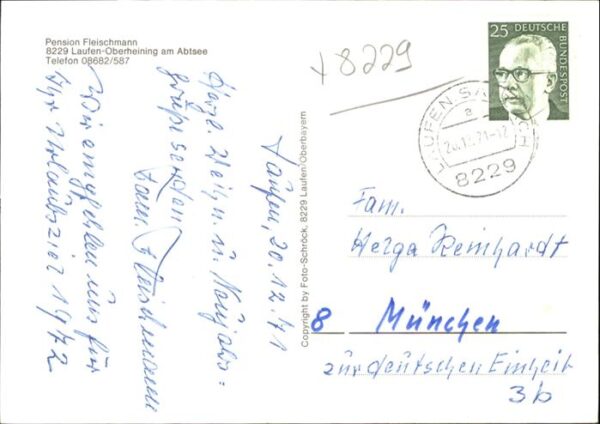 Pension Fleischmann
8229 Laufen-Oberheining am Abtsee
Telefon 08682/587
Laufen, 20.12.71
Herzl. Weihn. u. Neujahrs=
grüße senden
Fam. Fleischmann
Wir empfehlen uns für
Ihr Urlaubsziel 1972
Copyright by Foto-Schröck, 8229 Laufen/Oberbayern
8229
25 DEUTSCHE BUNDESPOST
LAUFEN, SALZACH
a
8229
Fam.
Helga Reinhardt
8 München
zur deutschen Einheit
3b